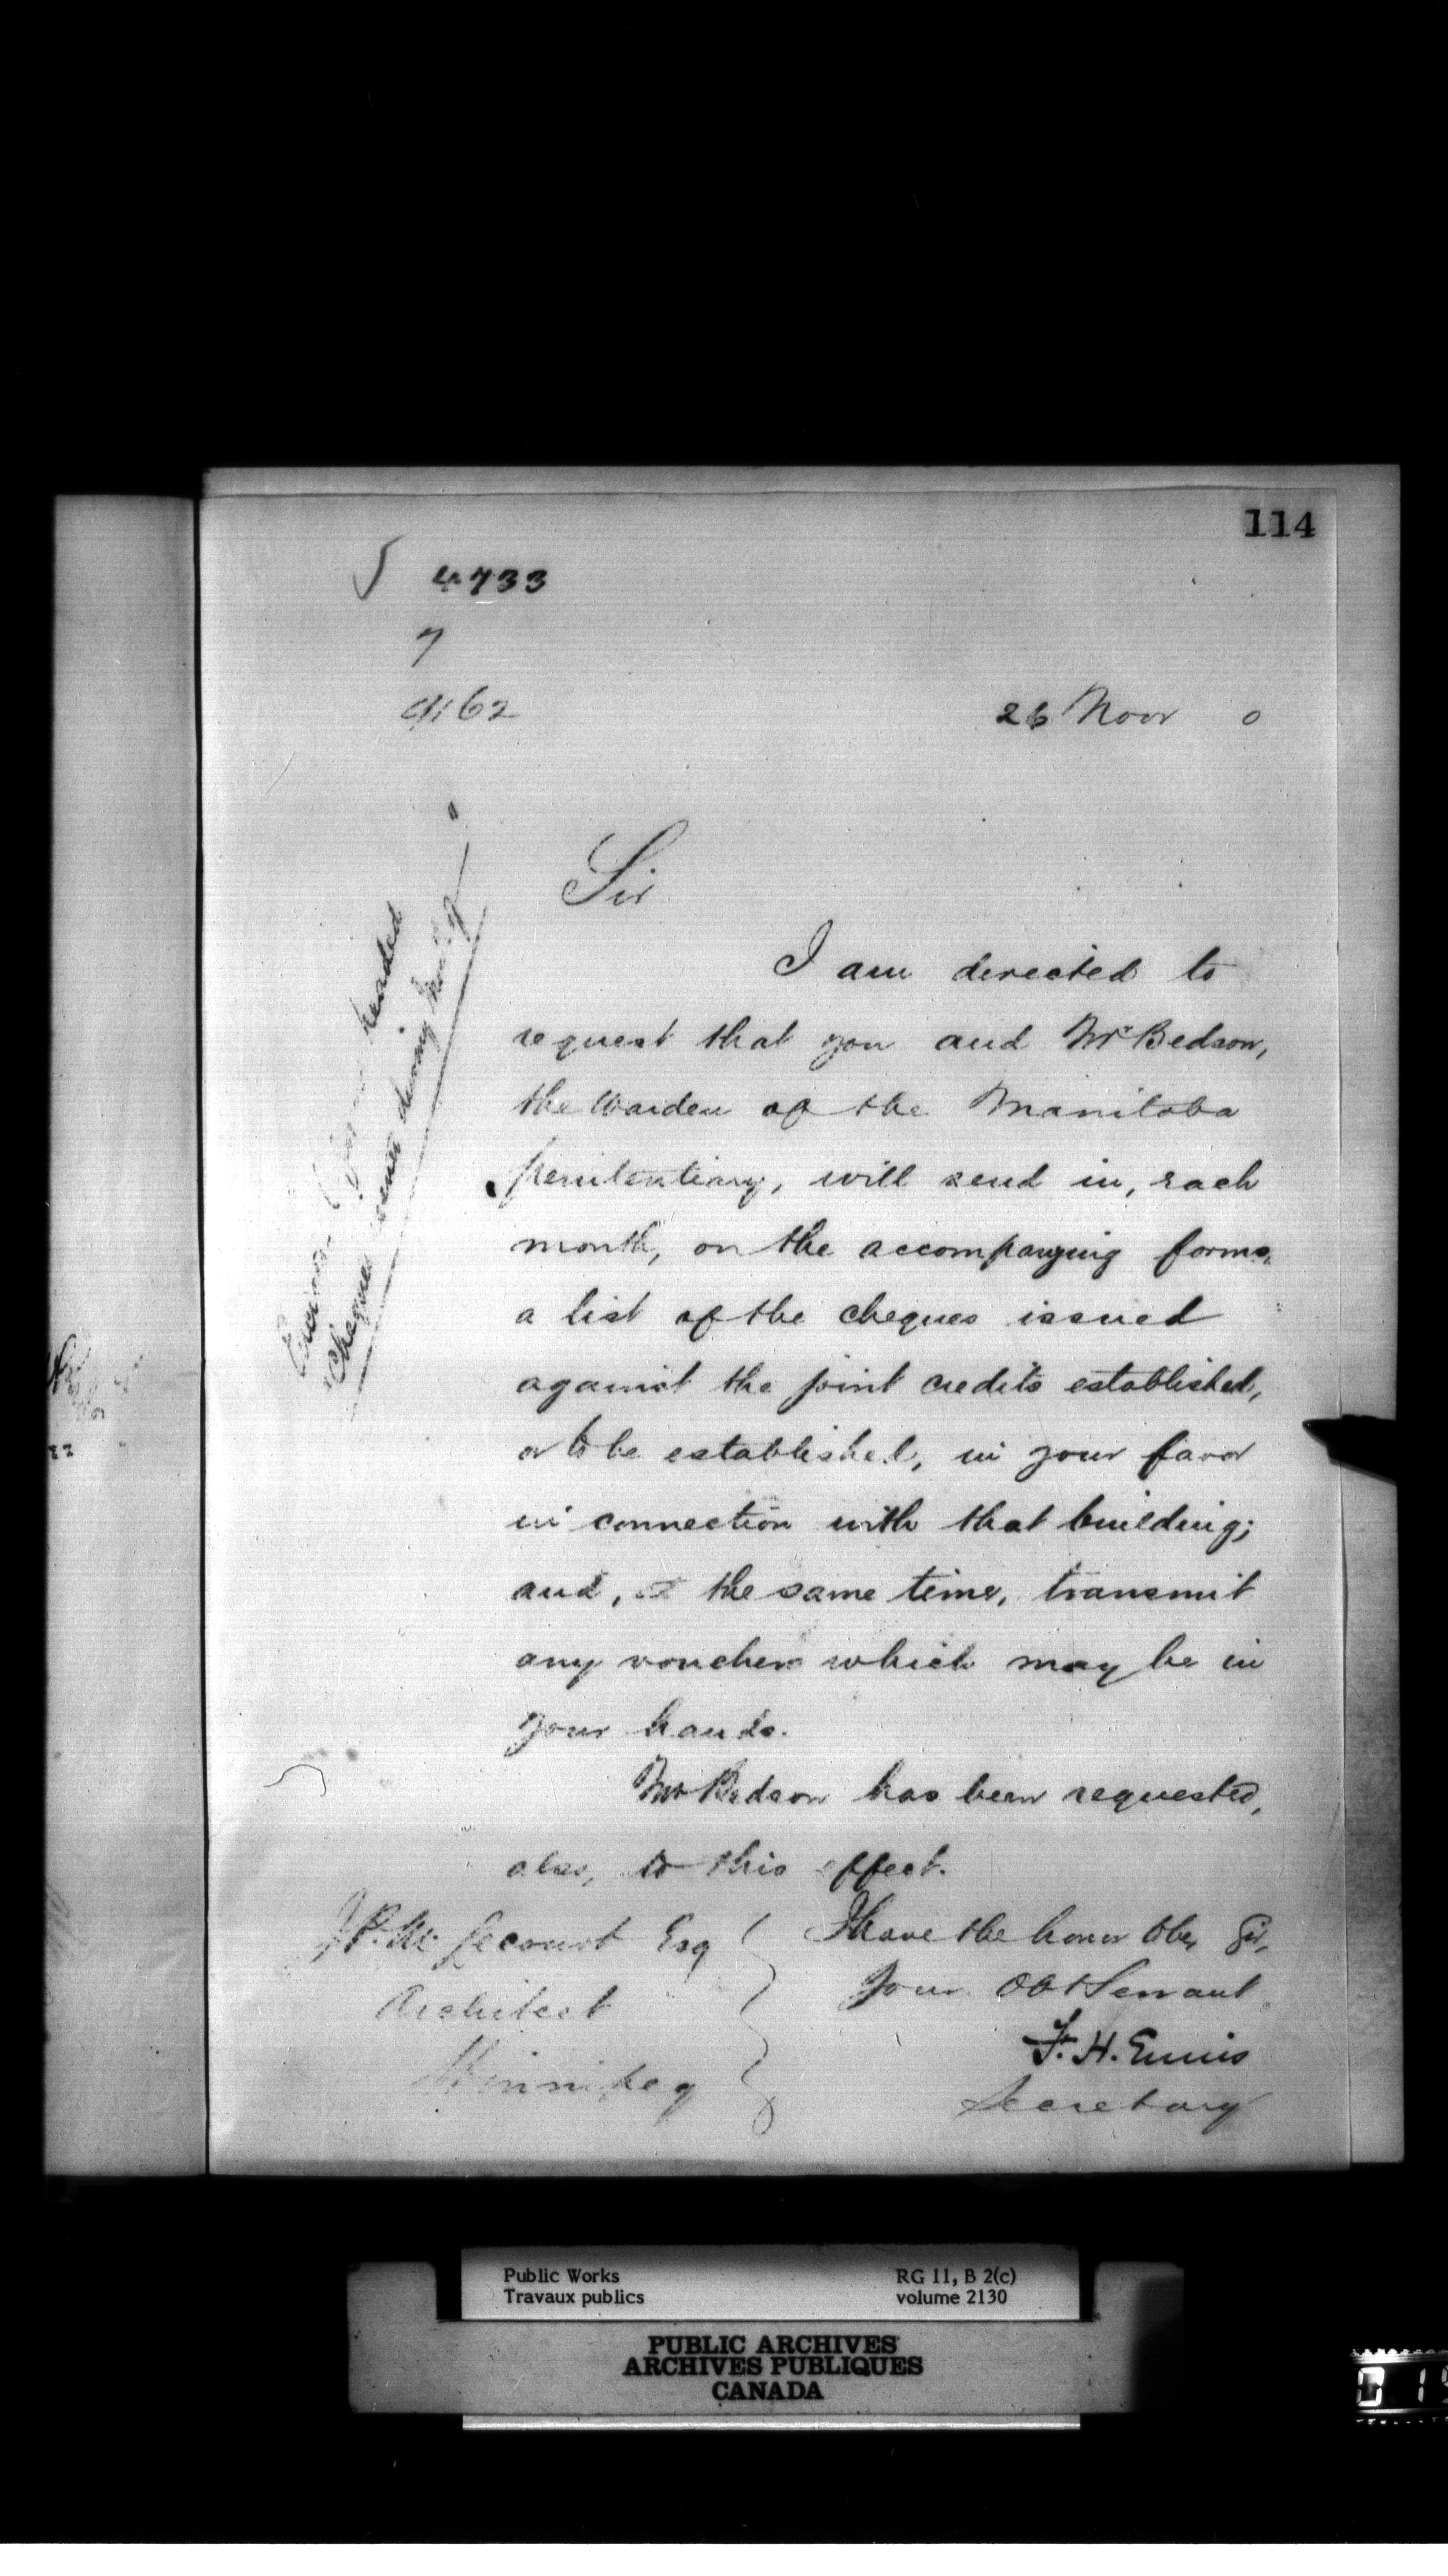 114
4733
7
9162
26 Novr 0
headed
"Cheques issued during
Sir
I am directed to
request that you and Mr Bedson,
the Warden of the Manitoba
penitentiary, will send in, each
month, on the accompanying forms,
a list of the cheques issued
against the joint credits established,
or to be established, in your favor
in connection with that building;
and, at the same time, transmit
any vouchers which may be in
your hands.
Mr Bedson has been requested,
also, to this effect.
J. P. M. Lecourt Esq
Architect
Winnipeg
I have the honor to be, Sir,
Your Obt Servant
F. H. Ennis
Secretary
Public Works
Travaux publics
RG 11, B 2(c)
volume 2130
PUBLIC ARCHIVES
ARCHIVES PUBLIQUES
CANADA